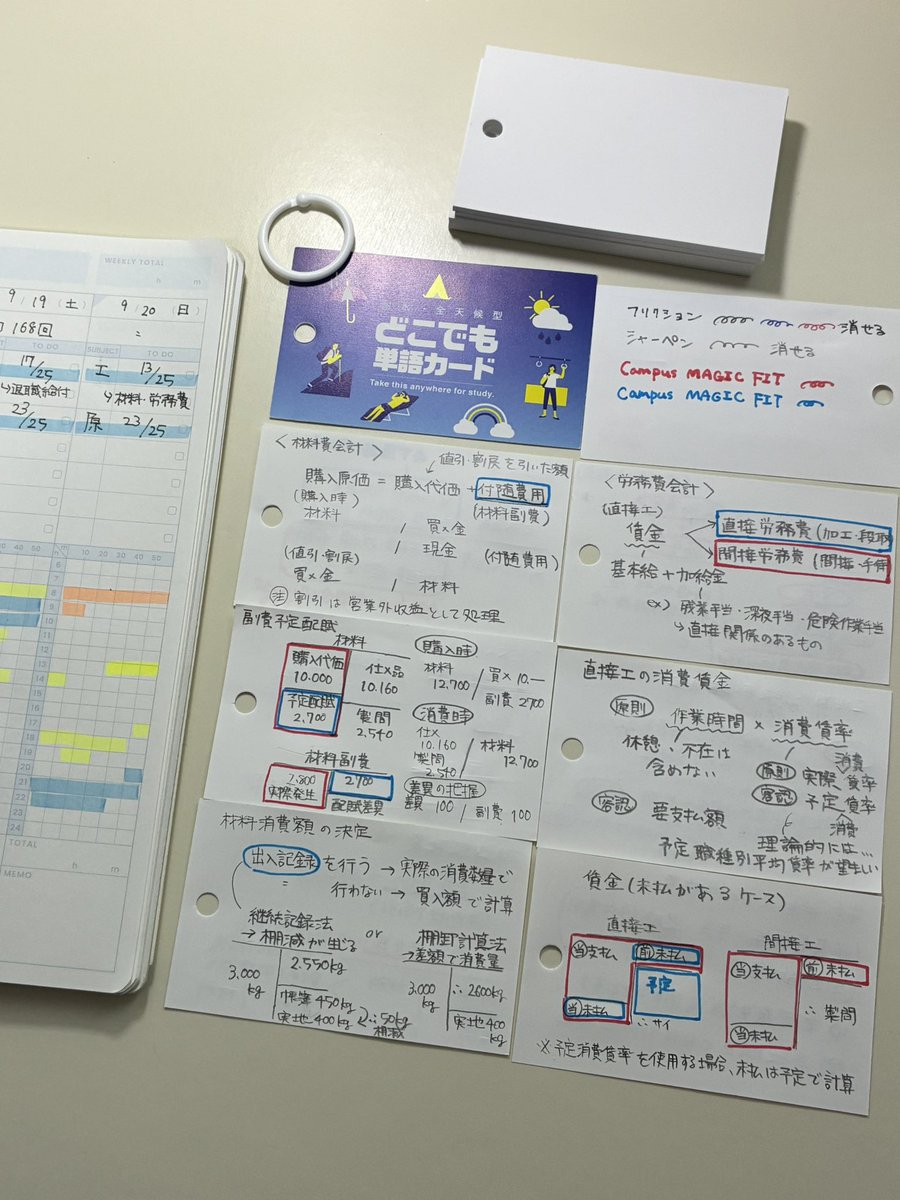 WEEKLY TOTAL
h m
9/19（土）
9/20（日）
168回
=
TO DO
SUBJECT TO DO
17/25
工 13/25
↳退職給付
↳材料・労務費
23/25
原 23/25
h m 10 20 30 40 50
6
7
8
9
10
11
12
13
14
15
16
17
18
19
20
21
22
23
24
TOTAL
h m
MEMO
全天候型
どこでも
単語カード
Take this anywhere for study.
フリクション 消せる
シャーペン 消せる
Campus MAGIC FIT
Campus MAGIC FIT
〈材料費会計〉
値引・割戻を引いた額
購入原価 = 購入代価 + 付随費用
(購入時) (材料副費)
材料 / 買×金
/ 現金 (付随費用)
(値引・割戻)
買×金 / 材料
注 割引は営業外収益として処理
〈労務費会計〉
(直接工)
賃金
直接労務費(加工・段取
間接労務費(間接・手待
基本給 + 加給金
ex) 残業手当・深夜手当・危険作業手当
↳直接関係のあるもの
副費予定配賦
材料
購入代価
10.000
予定配賦
2,700
仕×品
10.160
製間
2.540
材料副費
2,800
実際発生
2700
配賦差異
購入時
材料
12.700 / 買× 10.―
副費 2700
消費時
仕×
10.160
製間
2.540 / 材料
12.700
差異の把握
差異 100 / 副費 100
直接工の消費賃金
原則 作業時間 × 消費賃率
休憩、不在は
含めない
消費
原則 実際賃率
容認 予定賃率
消費
容認 要支払額
理論的には…
予定職種別平均賃率が望ましい
材料消費額の決定
出入記録を行う → 実際の消費数量で
=
行わない → 買入額で計算
継続記録法 or 棚卸計算法
→棚減が生じる
→差額で消費量
3.000
kg
2.550kg
帳簿450kg
実地400kg
∴50kg
棚減
3.000
kg
∴2600kg
実地400
kg
賃金(未払があるケース)
直接工
当支払
前未払
予定
当未払
∴サイ
間接工
当支払
前未払
当未払
∴製間
※予定消費賃率を使用する場合、未払は予定で計算